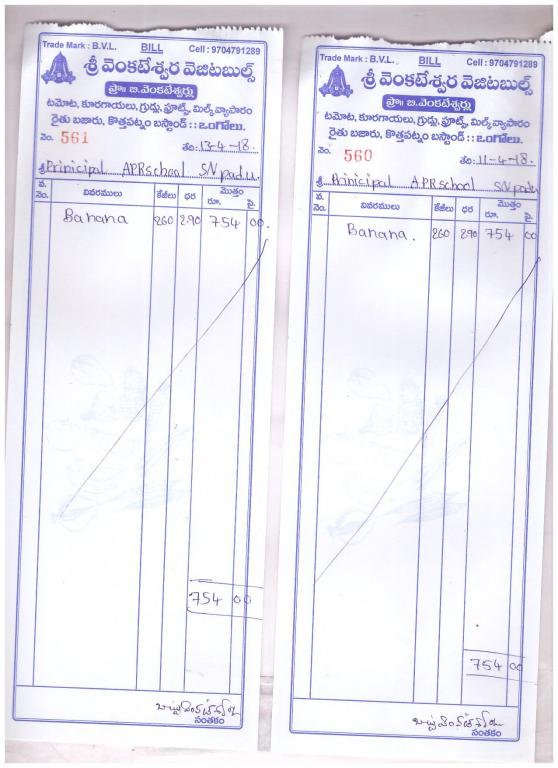 Trade Mark : B.V.L. BILL Cell : 9704791289
శ్రీ వెంకటేశ్వర వెజిటబుల్స్
ప్రొ॥ బి.వెంకటేశ్వర్లు
టమోట, కూరగాయలు, గ్రుడ్లు, ఫ్రూట్స్, మిల్క్ వ్యాపారం
రైతు బజారు, కొత్తపట్నం బస్టాండ్ :: ఒంగోలు.
నెం. 561 తేది: 13-4-18.
శ్రీ Prinicipal APRschool S.N.padu.
వ.నెం. వివరములు కేజీలు ధర మొత్తం రూ. పై.
Banana 260 2.90 754 00.
754 00
సంతకం
Trade Mark : B.V.L. BILL Cell : 9704791289
శ్రీ వెంకటేశ్వర వెజిటబుల్స్
ప్రొ॥ బి.వెంకటేశ్వర్లు
టమోట, కూరగాయలు, గ్రుడ్లు, ఫ్రూట్స్, మిల్క్ వ్యాపారం
రైతు బజారు, కొత్తపట్నం బస్టాండ్ :: ఒంగోలు.
నెం. 560 తేది: 11-4-18.
శ్రీ Prinicipal APRschool S.N.padu
వ.నెం. వివరములు కేజీలు ధర మొత్తం రూ. పై.
Banana. 260 290 754 00
754 00
సంతకం